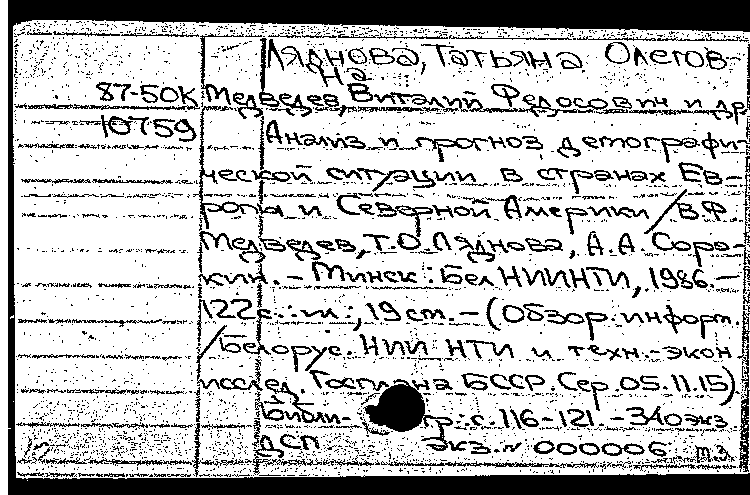 Ляднова, Татьяна Олегов-
на
87-50К Медведев, Виталий Федосович и др
10759 Анализ и прогноз демографи-
ческой ситуации в странах Ев-
ропы и Северной Америки / В.Ф.
Медведев, Т.О. Ляднова, А.А. Соро-
кин. – Минск: БелНИИНТИ, 1986. –
122 с.: ил.; 19 см. – (Обзор. информ.
/ Белорус. НИИ НТИ и техн.-экон
исслед. Госплана БССР. Сер. 05.11.15)
Библи- гр.: с. 116-121. – 340 экз
ДСП экз. № 000006 т.з.